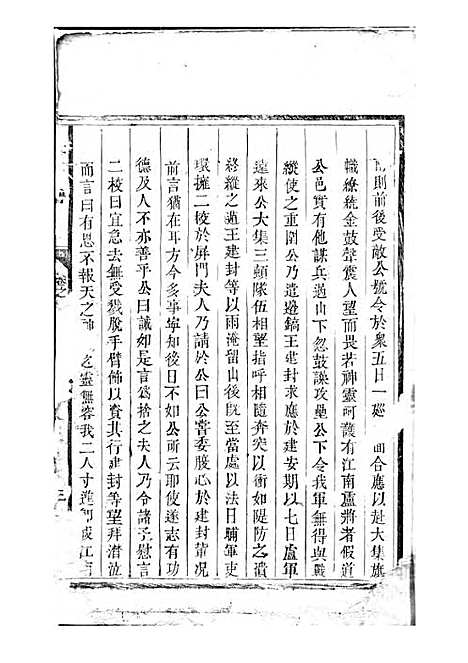 則前後受敵公號令於衆五日一廵 面合應以赴大集旗
幟繚統金鼓聲震人望而畏若神靈呵護有江南盧將者假道
公邑實有他謀兵過山下忽鼓譟攻壘公下令我軍無得與戰
縱使之重圍公乃遣邊鎬王建封求應於建安期以七日盧軍
遠來公大集三顛隊伍相望指呼相隨奔突以衝如隄防之潰
終縱之遁王建封等以雨淹留山後旣至當處以法日驕軍吏
環擁二校於屏門夫人乃請於公曰公嘗委腹心於建封輩况
前言猶在耳方今多事寧知後日不如公所云耶使遂志有功
德及人不亦善乎公曰誠如是言爲捨之夫人乃令諸子慰言
二校曰宜急去無受戮脫手臂佛以資其行建封等望拜潸泣
而言曰有恩不報天之 之靈無容我二人寸進 江